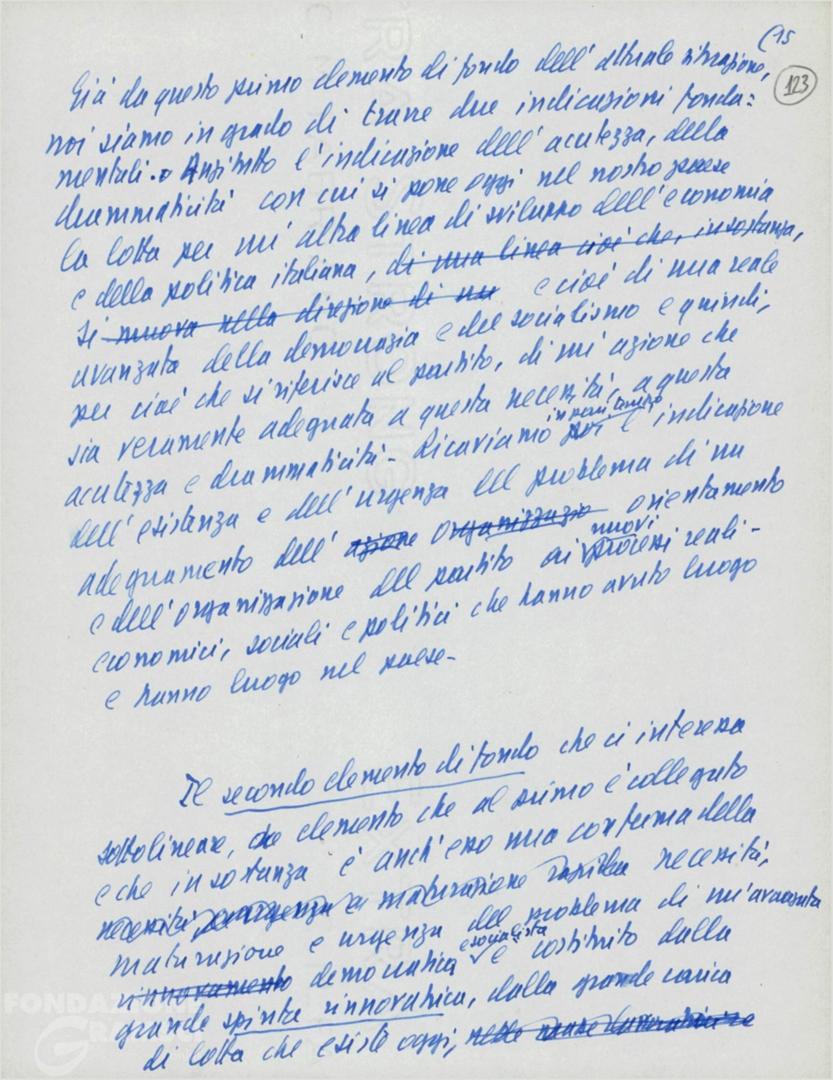 (15
123
Già da questo primo elemento di fondo dell'attuale situazione,
noi siamo in grado di trarre due indicazioni fonda=
mentali. Anzitutto l'indicazione dell'acutezza, della
drammaticità con cui si pone oggi nel nostro paese
la lotta per un'altra linea di sviluppo dell'economia
e della politica italiana, di una linea cioè che, in sostanza,
si muova nella direzione di un e cioè di una reale
avanzata della democrazia e del socialismo e quindi,
per ciò che si riferisce al partito, di un'azione che
sia veramente adeguata a questa necessità, a questa
acutezza e drammaticità - Ricaviamo poi l'indicazione
dell'esistenza e dell'urgenza del problema di un
adeguamento dell'azione organizzazio orientamento
e dell'organizzazione del partito ai nuovi processi reali -
economici, sociali e politici che hanno avuto luogo
e hanno luogo nel paese -
Il secondo elemento di fondo che ci interessa
sottolineare, elemento che al primo è collegato
e che in sostanza è anch'esso una conferma della
necessità maturazione necessità,
maturazione e urgenza del problema di un'avanzata
rinnovamento democratica e socialista è costituito dalla
grande spinta innovatrice, dalla grande carica
di lotta che esiste oggi,
FONDAZIONE
GRAMSCI